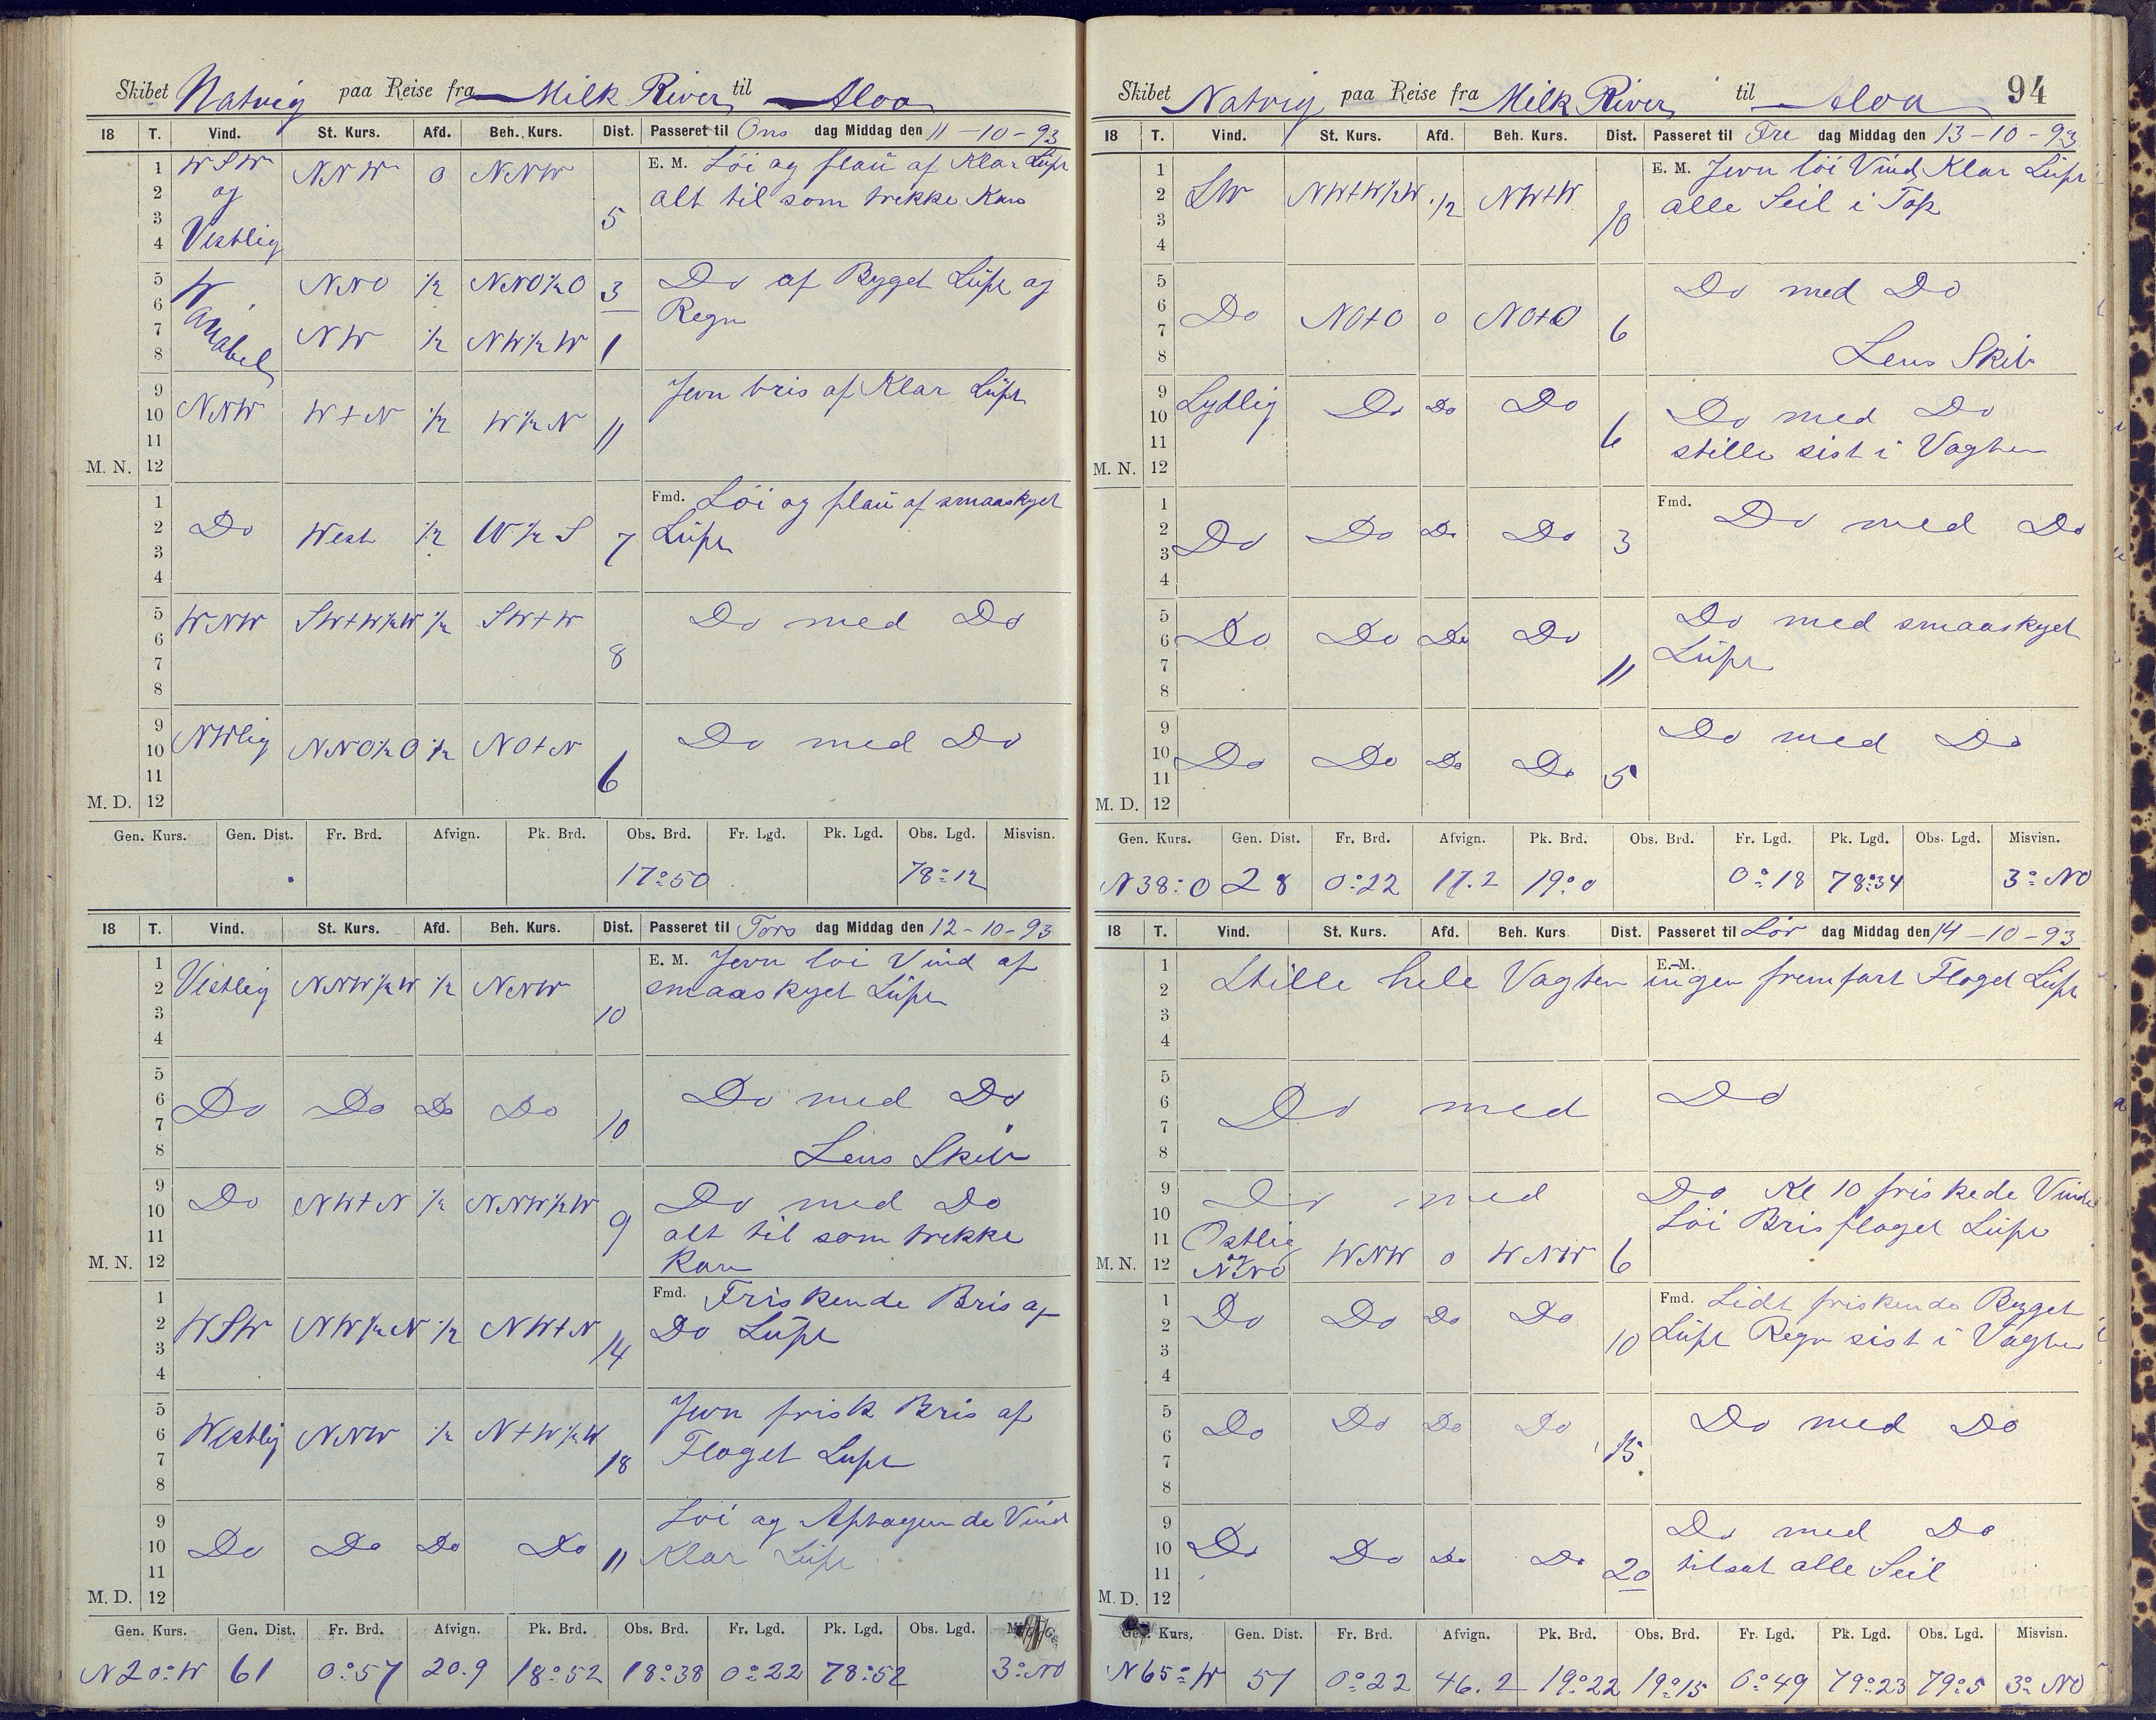 Skibet Natvig paa Reise fra Milk River til Aloa
18 T. Vind. St. Kurs. Afd. Beh. Kurs. Dist. Passeret til Ons dag Middag den 11-10-93
1 WSW NNW 0 NNW E. M. Löi og flau af Klar Lüft
2 og alt til som trekke Kan
3 5
4 Vestlig
5 W. NNO ½ NNO½O 3 Do af Bygget Lüft og
6 Regn
7 NW ½ NW½W 1
8
9 Jevn bris af Klar Lüft
10 NNW W+N ½ W½N 11
11
M. N. 12
1 Fmd. Löi og flau af smaaskyet
2 Do West ½ W½S 7 Lüft
3
4
5 WNW SW+W½W ½ SW+W Do med Do
6
7 8
8
9
10 NWlig NNO½O ½ NO+N Do med Do
11 6
M. D. 12
Gen. Kurs. Gen. Dist. Fr. Brd. Afvign. Pk. Brd. Obs. Brd. Fr. Lgd. Pk. Lgd. Obs. Lgd. Misvisn.
17°50 78°12
18 T. Vind. St. Kurs. Afd. Beh. Kurs. Dist. Passeret til Tors dag Middag den 12-10-93
1 E. M. Jevn loi Vind af
2 Vestlig NNW½W ½ NNW smaaskyet Lüft
3 10
4
5
6 Do Do Do Do Do med Do
7 10
8 Lens Skib
9 Do NW+N ½ NNW½W Do med Do
10 9
11 alt til som trekke
M. N. 12 Kan
1 Fmd. Friskende Bris af
2 WSW NW½N ½ NW+N Do Lüft
3 14
4
5 Jevn frisk Bris af
6 Westlig NNW ½ N+W½W
7 18 Flaget Luft
8
9 Loi og Aftagende Vind
10 Do Do Do Do 11 Klar Lüft
11
M. D. 12
Gen. Kurs. Gen. Dist. Fr. Brd. Afvign. Pk. Brd. Obs. Brd. Fr. Lgd. Pk. Lgd. Obs. Lgd.
N20°W 61 0°57 20.9 18°52 18°38 0°22 78°52 3° NO
Skibet Natvig paa Reise fra Milk River til Aloa 94
18 T. Vind. St. Kurs. Afd. Beh. Kurs. Dist. Passeret til Fre dag Middag den 13-10-93
1 E. M. Jevn löi Vind Klar Lüft
2 SW NW+W½W ½ NW+W alle Seil i Top
3 10
4
5 Do med Do
6 Do NO+O 0 NO+O 6
7
8 Lens Skib
9 Sydlig Do Do Do Do med Do
10
11 6 stille sist i Vagten
M. N. 12
1 Fmd. Do med Do
2 Do Do Do Do 3
3
4
5 Do med smaaskyet
6 Do Do Do Do Lüft
7 11
8
9 Do med Do
10 Do Do Do Do
11 5
M. D. 12
Gen. Kurs. Gen. Dist. Fr. Brd. Afvign. Pk. Brd. Obs. Brd. Fr. Lgd. Pk. Lgd. Obs. Lgd. Misvisn.
N38°O 28 0°22 17.2 19°0 0°18 78°34 3° NO
18 T. Vind. St. Kurs. Afd. Beh. Kurs Dist. Passeret til Lör dag Middag den 14-10-93
1 E. M.
2 Stille hele Vagten ingen fremfart Flaget Lüft
3
4
5
6 Do med Do
7
8
9 Do med Do Kl 10 friskede Vinden
10 Löi Bris flaget Lüft
11 Ostlig
M. N. 12 og NNO WNW 0 WNW 6
1 Do Do Do Do Fmd. Lidt friskende Bygget
2 10 Lüft Regn sist i Vagten
3
4
5 Do Do Do Do Do med Do
6
7 15
8
9 Do med Do
10 Do Do Do Do
11 20 tilsat alle Seil
M. D. 12
Gen. Kurs. Gen. Dist. Fr. Brd. Afvign. Pk. Brd. Obs. Brd. Fr. Lgd. Pk. Lgd. Obs. Lgd. Misvisn.
N65°W 51 0°22 46.2 19°22 19°15 0°49 79°23 79°5 3° NO